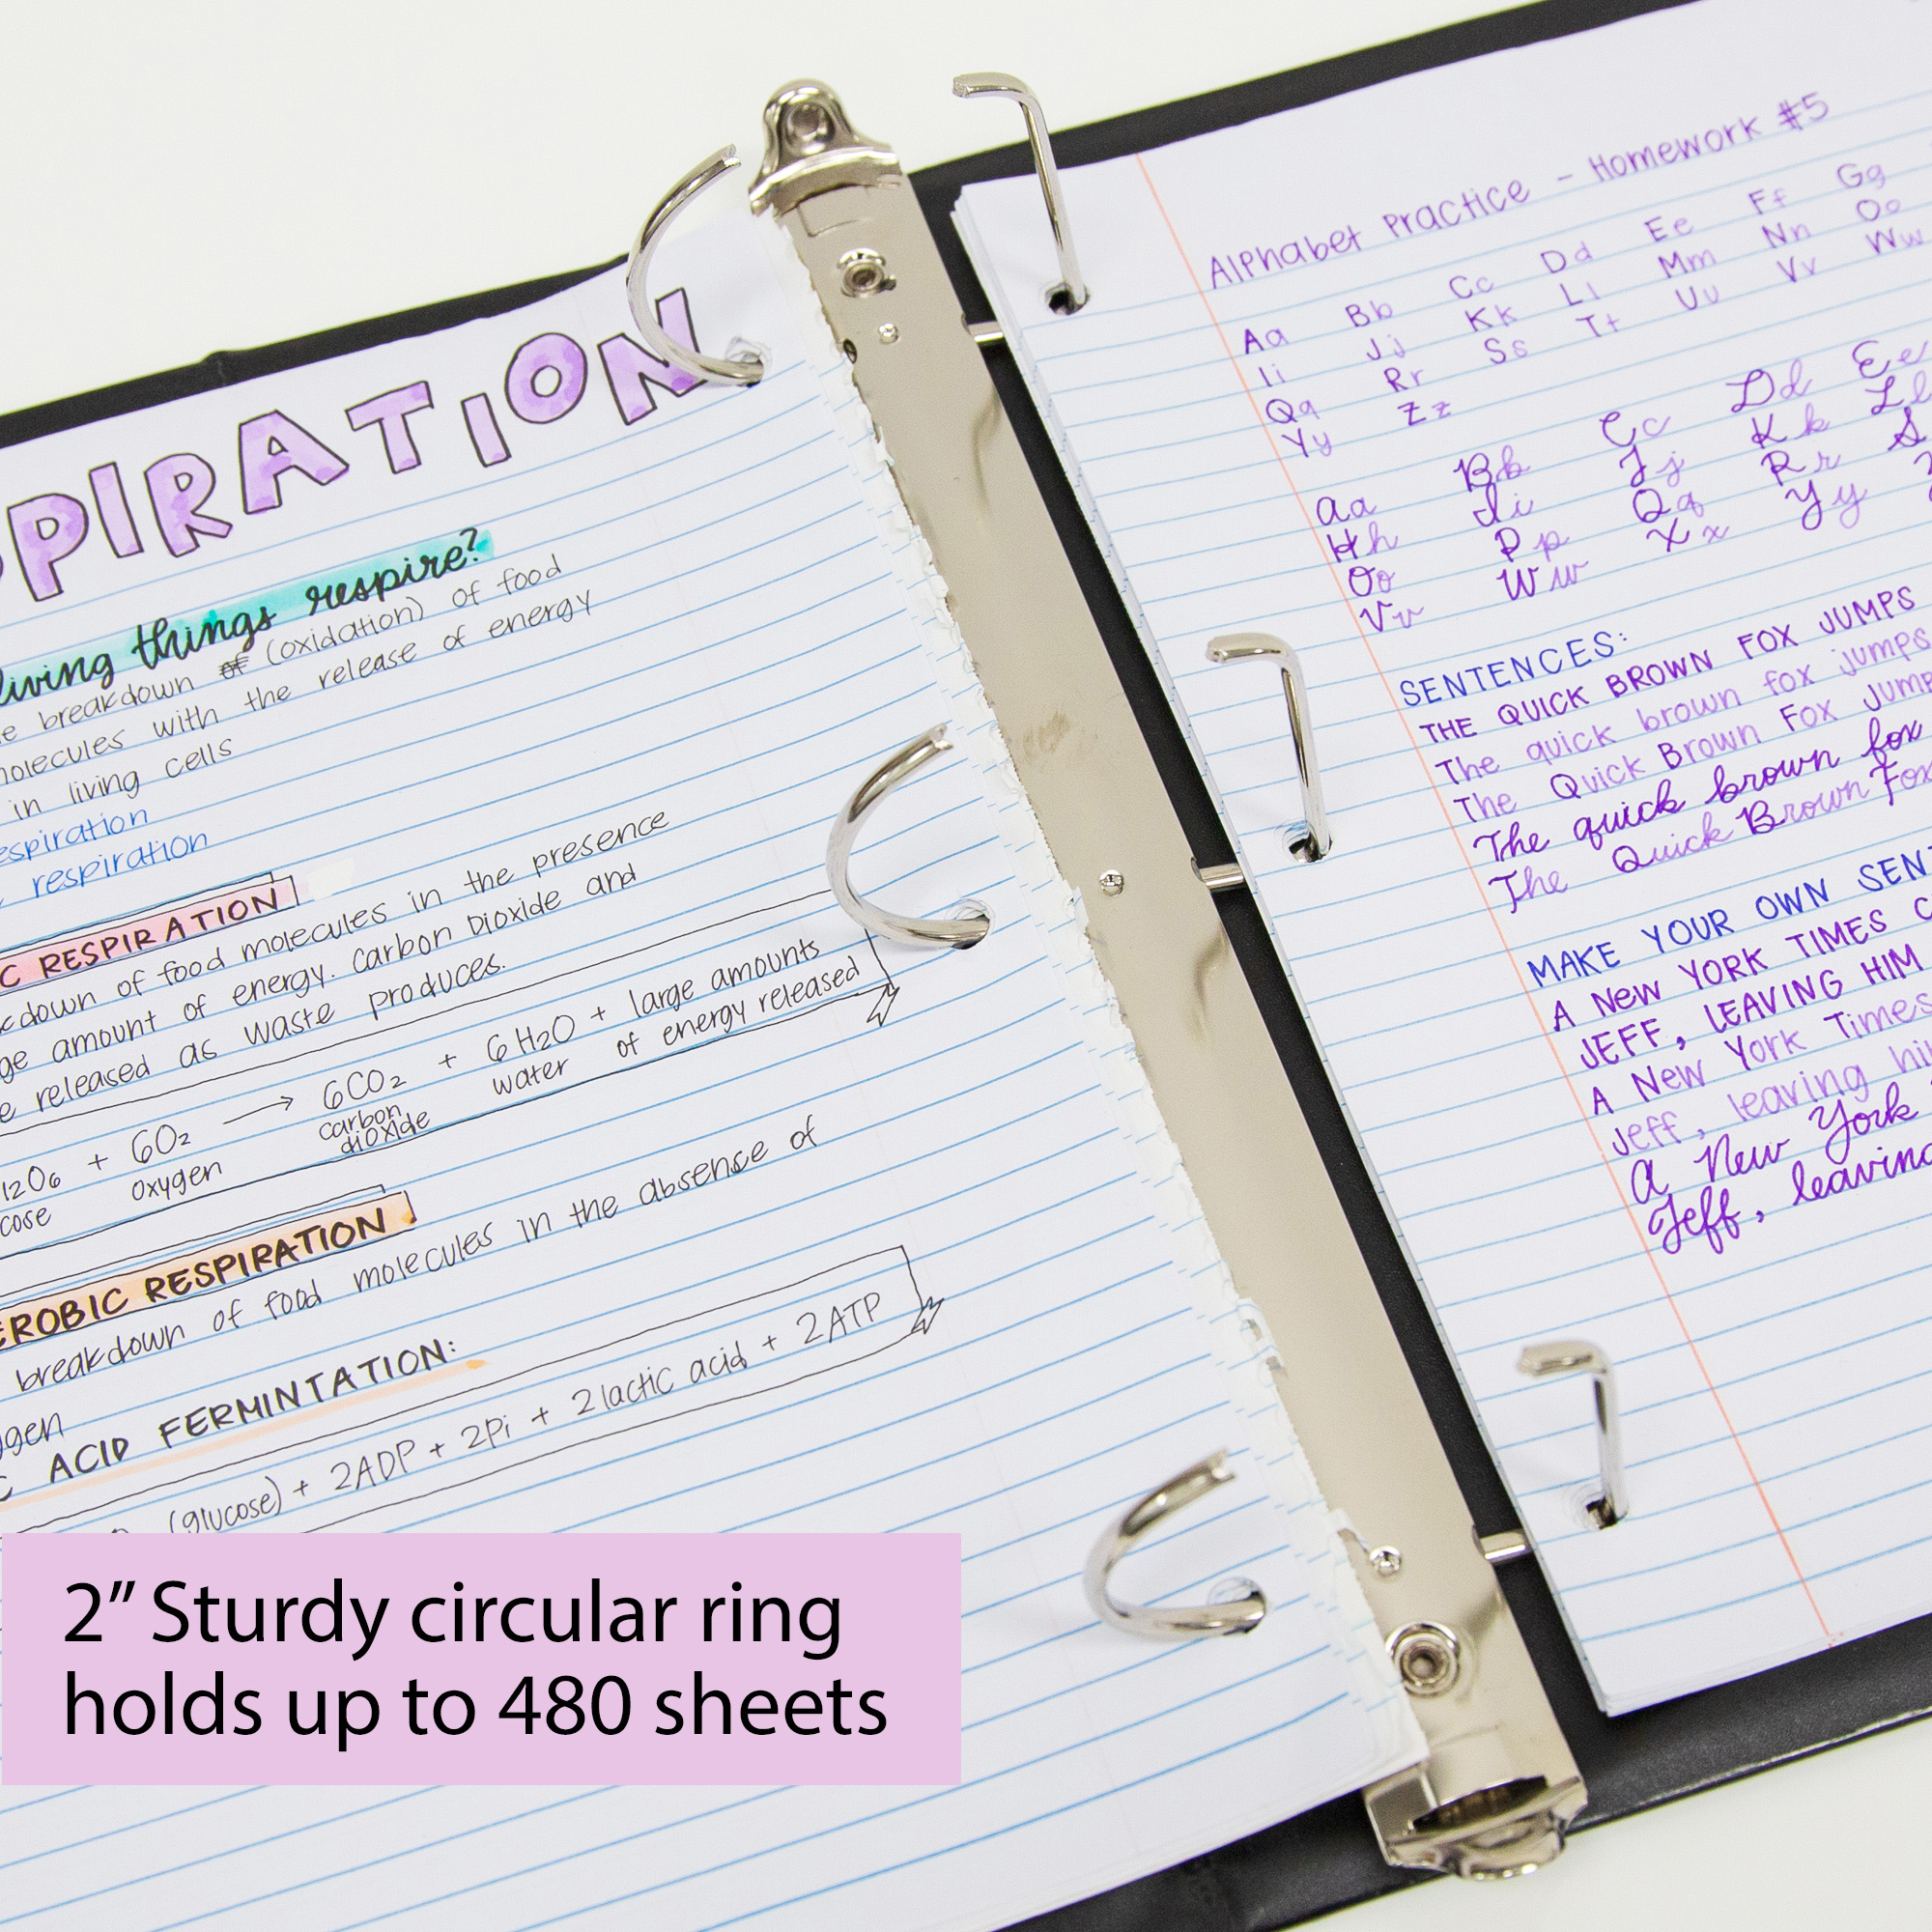 PIRATION
living things respire?
breakdown of (oxidation) of food
molecules with the release of energy
in living cells
respiration
respiration
C RESPIRATION
down of food molecules in the presence
amount of energy. Carbon Dioxide and
released as waste produces.
12O6 + 6O2 → 6CO2 + 6H2O + large amounts
of energy released
cose oxygen carbon dioxide water
EROBIC RESPIRATION
breakdown of food molecules in the absence of
gen
C ACID FERMINTATION:
(glucose) + 2ADP + 2Pi + 2 lactic acid + 2ATP
2” Sturdy circular ring
holds up to 480 sheets
Alphabet Practice - Homework #5
Aa Bb Cc Dd Ee Ff Gg
Ii Jj Kk Ll Mm Nn Oo
Qq Rr Ss Tt Uu Vv Ww
Yy Zz
Aa Bb Cc Dd Ee
Hh Ii Jj Kk Ll
Oo Pp Qq Rr S
Vv Ww Xx Yy
SENTENCES:
THE QUICK BROWN FOX JUMPS
The quick brown fox jumps
The Quick Brown Fox Jump
The quick brown fox
The Quick Brown Fox
MAKE YOUR OWN SENT
A NEW YORK TIMES C
JEFF, LEAVING HIM
A New York Times
Jeff, leaving hi
A New York
Jeff, leaving